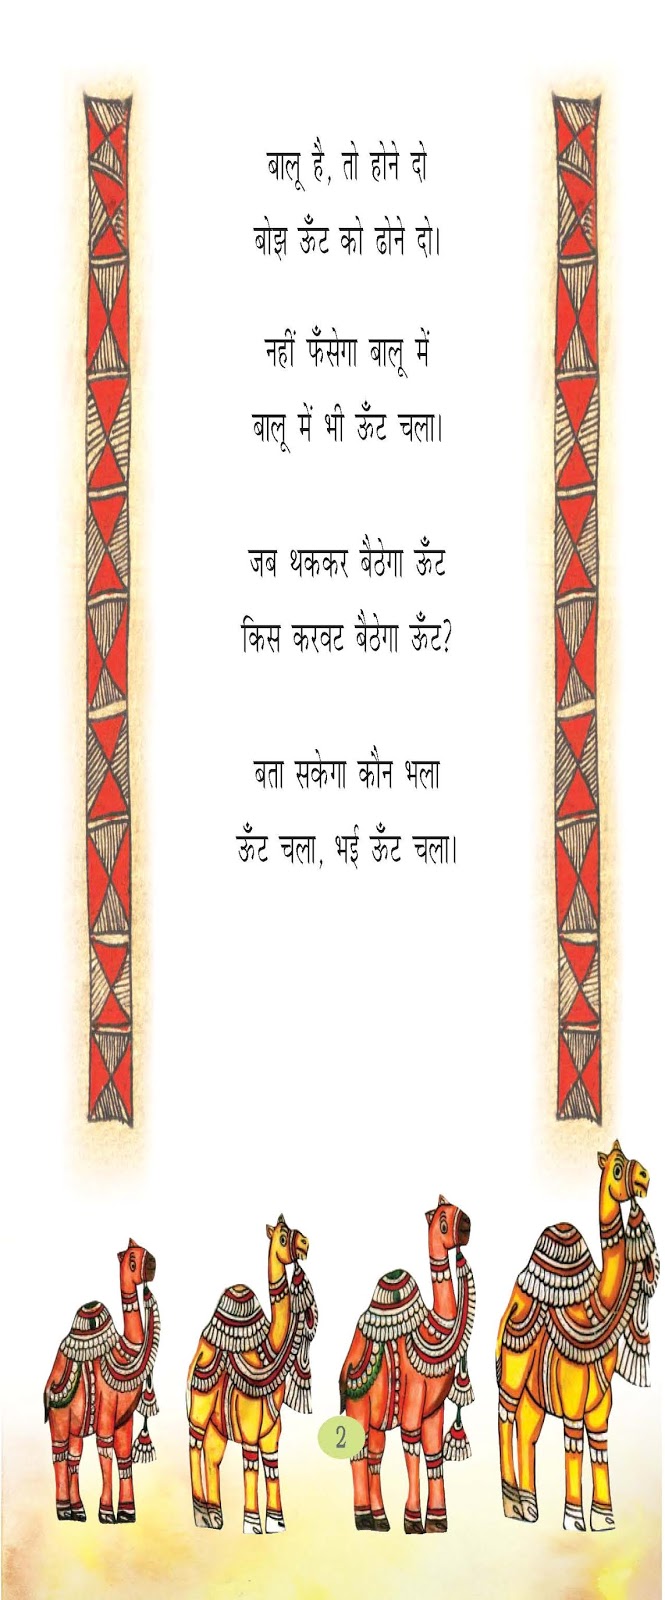 बालू है, तो होने दो
बोझ ऊँट को ढोने दो।
नहीं फँसेगा बालू में
बालू में भी ऊँट चला।
जब थककर बैठेगा ऊँट
किस करवट बैठेगा ऊँट?
बता सकेगा कौन भला
ऊँट चला, भई ऊँट चला।
2